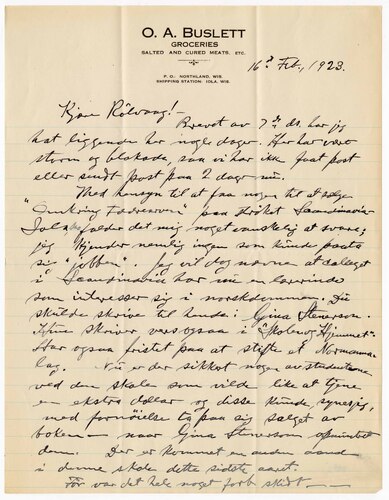 O. A. BUSLETT
GROCERIES
SALTED AND CURED MEATS, ETC.
P. O. NORTHLAND, WIS.
SHIPPING STATION: IOLA, WIS.
16de Feb., 1923.
Kjære Rölvaag! —
Brevet av 7de ds. har jeg
hat liggende her nogle dager. Her har vært
storm og, saa vi har ikke faat post
eller sendt post paa 2 dage nu.
Med hensyn til at faa nogen til at sælge
"Omkring Fædrearven" paa Scandinavia
falder det mig noget vanskelig at svare;
jeg kjender nemlig ingen som kunde passe
til "jobben". Jeg vil dog nævne at
i Scandinavia har nu en lærerinde
som interesser sig i norskdommen. Du
skulde skrive til hende: Gina Stenerson.
Hun skriver vers ogsaa i "Skole og Hjemmet"
Har ogsaa fristet paa at stifte et Normanna
lag. Nu er der sikkert nogen av studenterne
ved den skole som vilde like at tjene
en ekstra dollar og disse kunde, synes jeg,
med fornöielse ta paa sig salget av
boken — naar Gina Stenerson opmuntret
dem. Der er kommet en anden aand
i denne skole dette sidste aaret.
För var det hele noget forb. skidt —